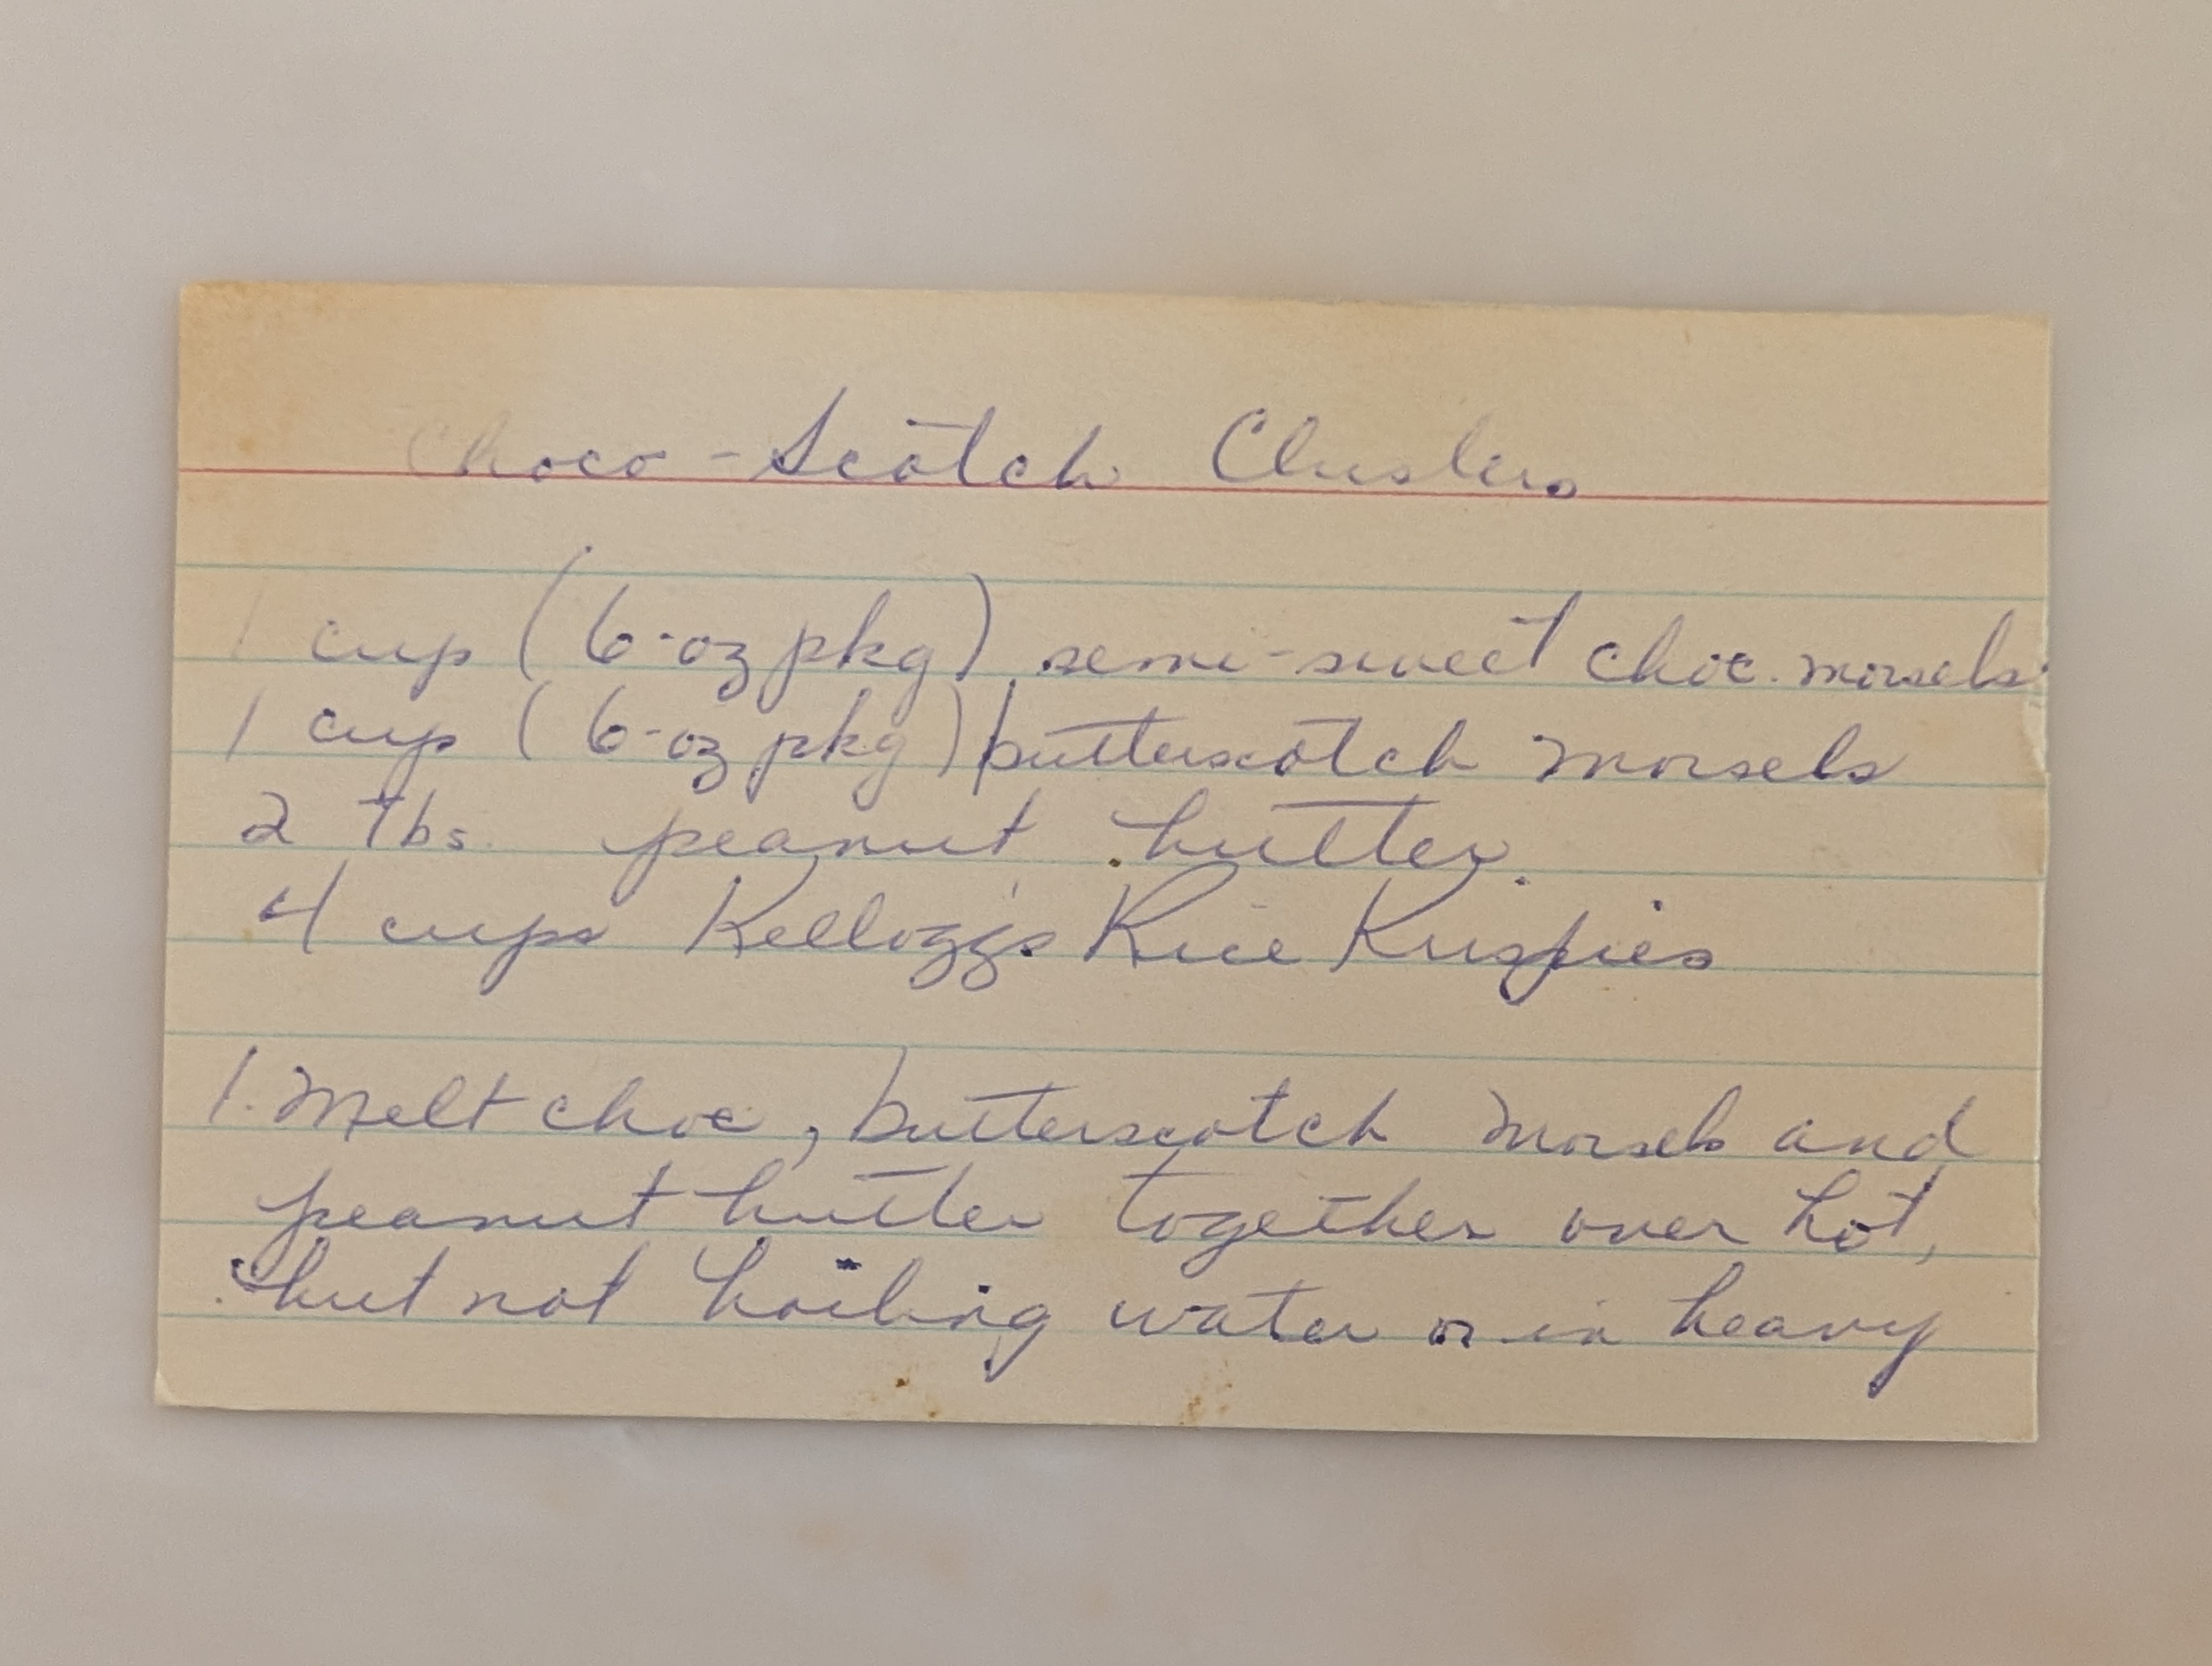 Choco-Scotch Clusters
1 cup (6-oz pkg) semi-sweet choc. morsels
1 cup (6-oz pkg) butterscotch morsels
2 Tbs. peanut butter
4 cups Kellogg's Rice Krispies
1. Melt choc, butterscotch morsels and
peanut butter together over hot,
but not boiling water or in heavy